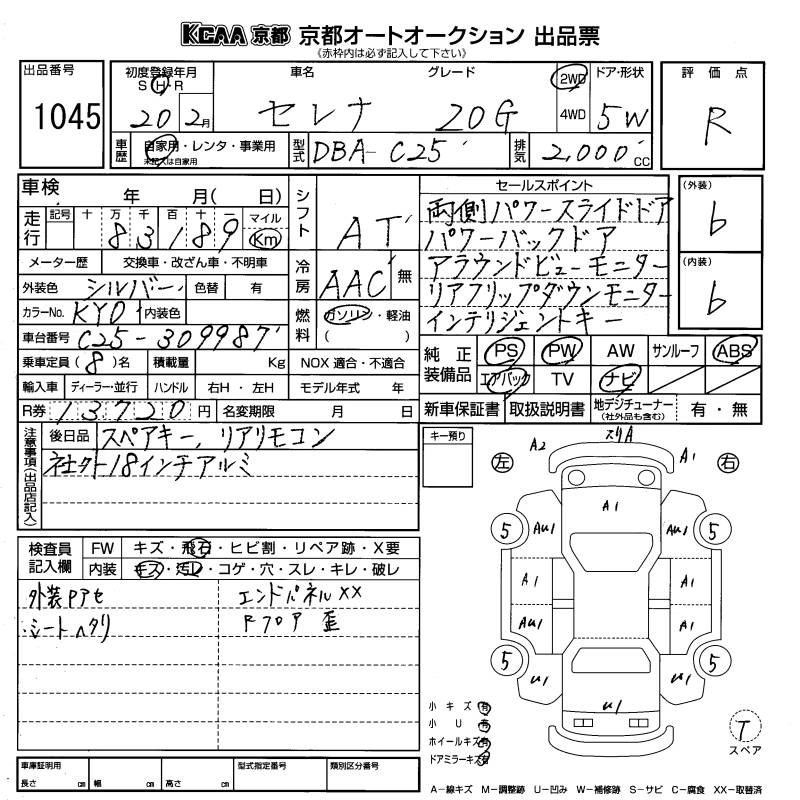 KCAA 京都 京都オートオークション 出品票
《赤枠内は必ず記入して下さい》
出品番号
1045
初度登録年月
S H・R
20 2月
車名
グレード
セレナ 20G
2WD
4WD
ドア・形状
5W
評価点
R
車歴
自家用・レンタ・事業用
未記入は自家用
型式
DBA-C25
排気
2,000 CC
車検 年 月( 日)
走行
記号 十 万 千 百 十 一 マイル
83189 Km
メーター歴 交換車・改ざん車・不明車
外装色 シルバー 色替 有
カラーNo. KY0 内装色
車台番号 C25-309987
乗車定員(8)名 積載量 Kg
輸入車 ディーラー・並行 ハンドル 右H・左H
R券 13720円 名変期限 月 日
シフト
AT
冷房
AAC 無
燃料
ガソリン・軽油
( )
NOX 適合・不適合
モデル年式 年
セールスポイント
両側パワースライドドア
パワーバックドア
アラウンドビューモニター
リアフリップダウンモニター
インテリジェントキー
(外装)
6
(内装)
6
純正装備品
PS PW AW サンルーフ ABS
エアバック TV ナビ
新車保証書 取扱説明書 地デジチューナー(社外品も含む) 有・無
注意事項(出品店記入)
後日品 スペアキー, リアリモコン
社外18インチアルミ
検査員記入欄
FW キズ・飛石・ヒビ割・リペア跡・X要
内装 キズ・汚レ・コゲ・穴・スレ・キレ・破レ
外装Pアセ
シートヘタリ
エンドパネルXX
Rフロア 歪
車庫証明用
長さ cm 幅 cm 高さ cm
型式指定番号
類別区分番号
キー預り
左
右
A2
スリA
A1
A1
5
AU1
AU1
5
A1
A1
AU1
A1
5
U1
U1
5
U1
小キズ 有
小U 有
ホイールキズ 有
ドアミラーキズ 有
T
スペア
A-線キズ M-調整跡 U-凹み W-補修跡 S-サビ C-腐食 XX-取替済